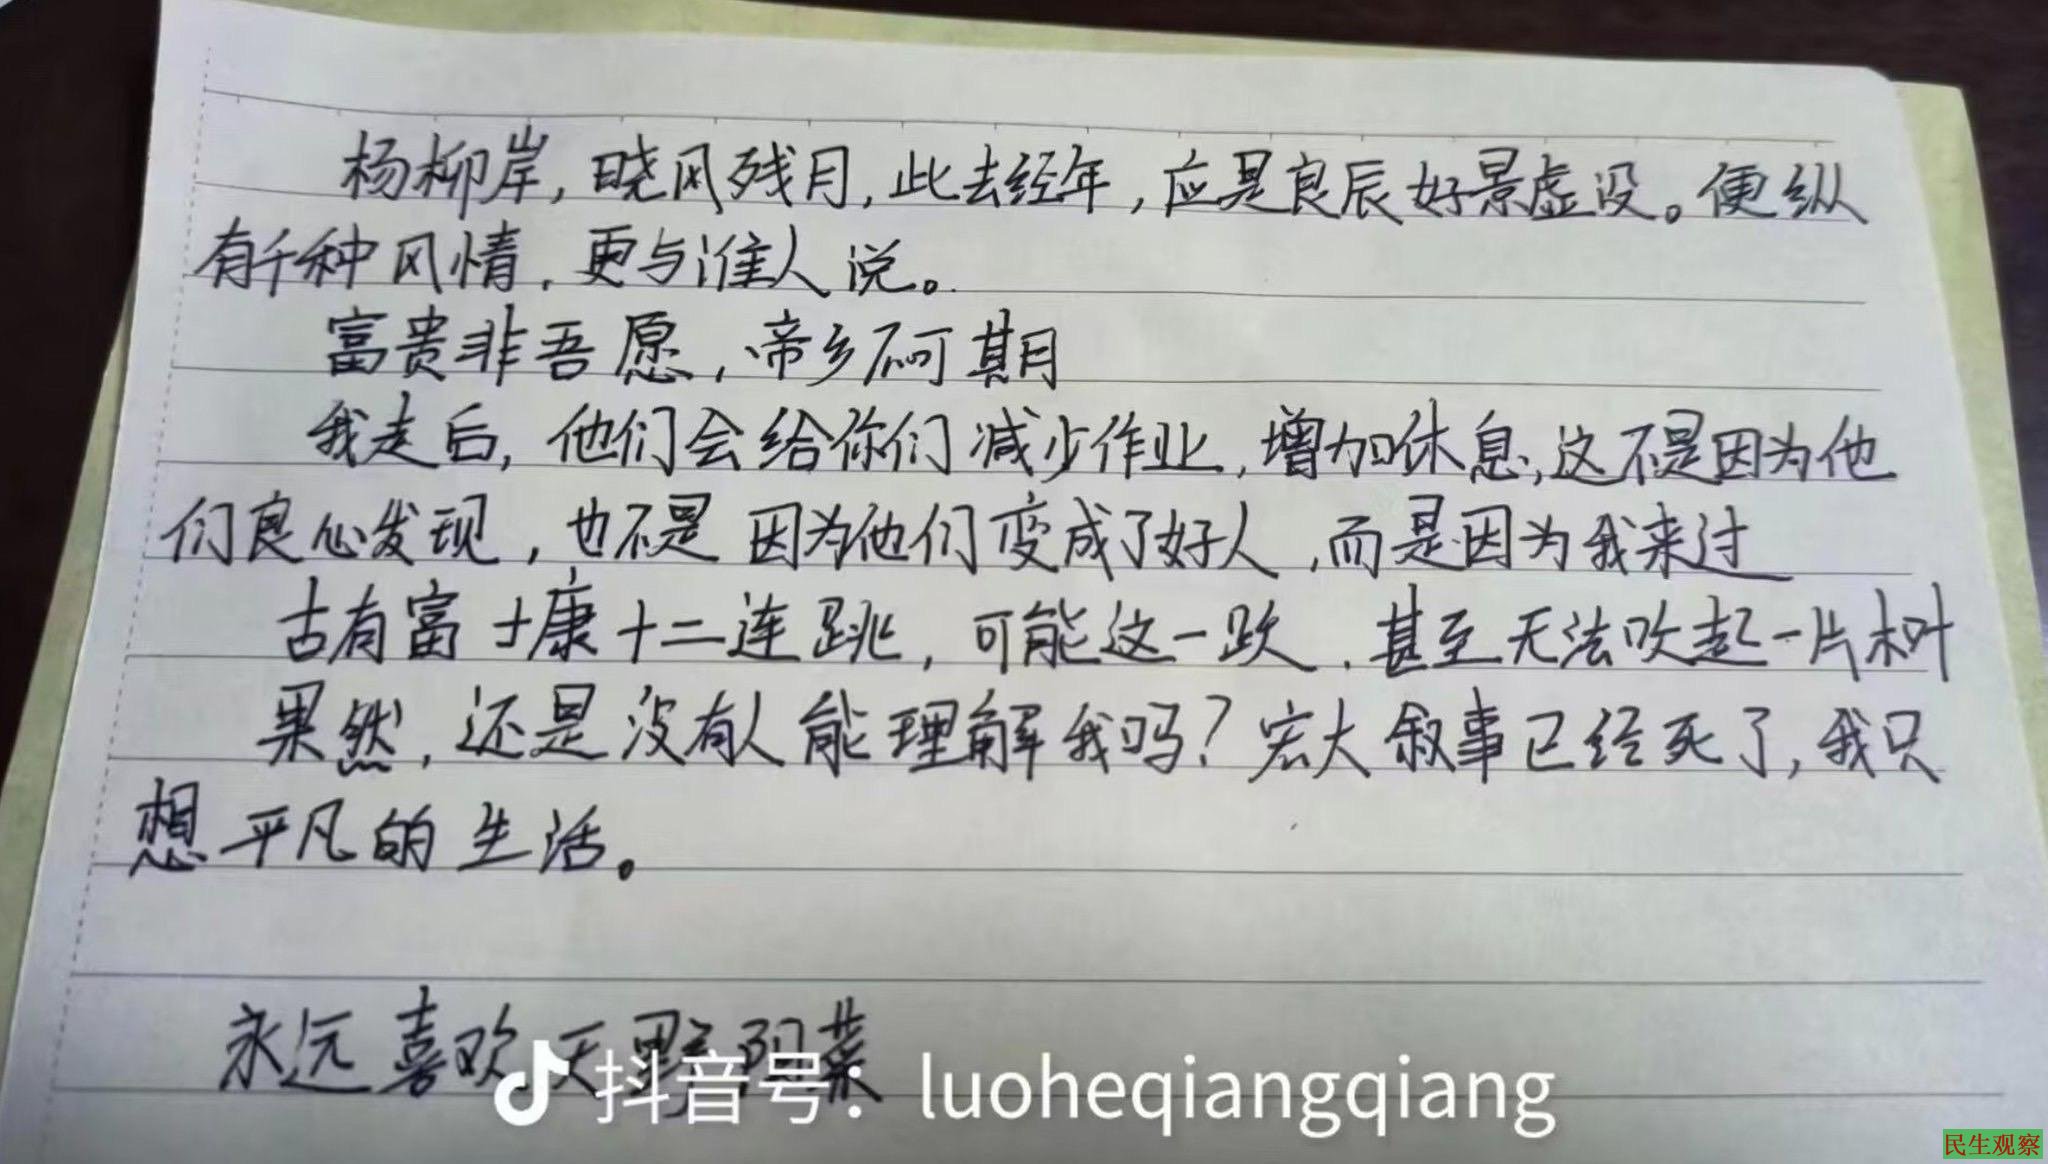 杨柳岸,晓风残月,此去经年,应是良辰好景虚设。便纵
有千种风情,更与谁人说。
富贵非吾愿,帝乡不可期
我走后,他们会给你们减少作业,增加休息,这不是因为他
们良心发现,也不是因为他们变成了好人,而是因为我来过
古有富士康十二连跳,可能这一跃,甚至无法吹起一片树叶
果然,还是没有人能理解我吗?宏大叙事已经死了,我只
想平凡的生活。
永远喜欢天野阿菜
抖音号:luoheqiangqiang
民生观察